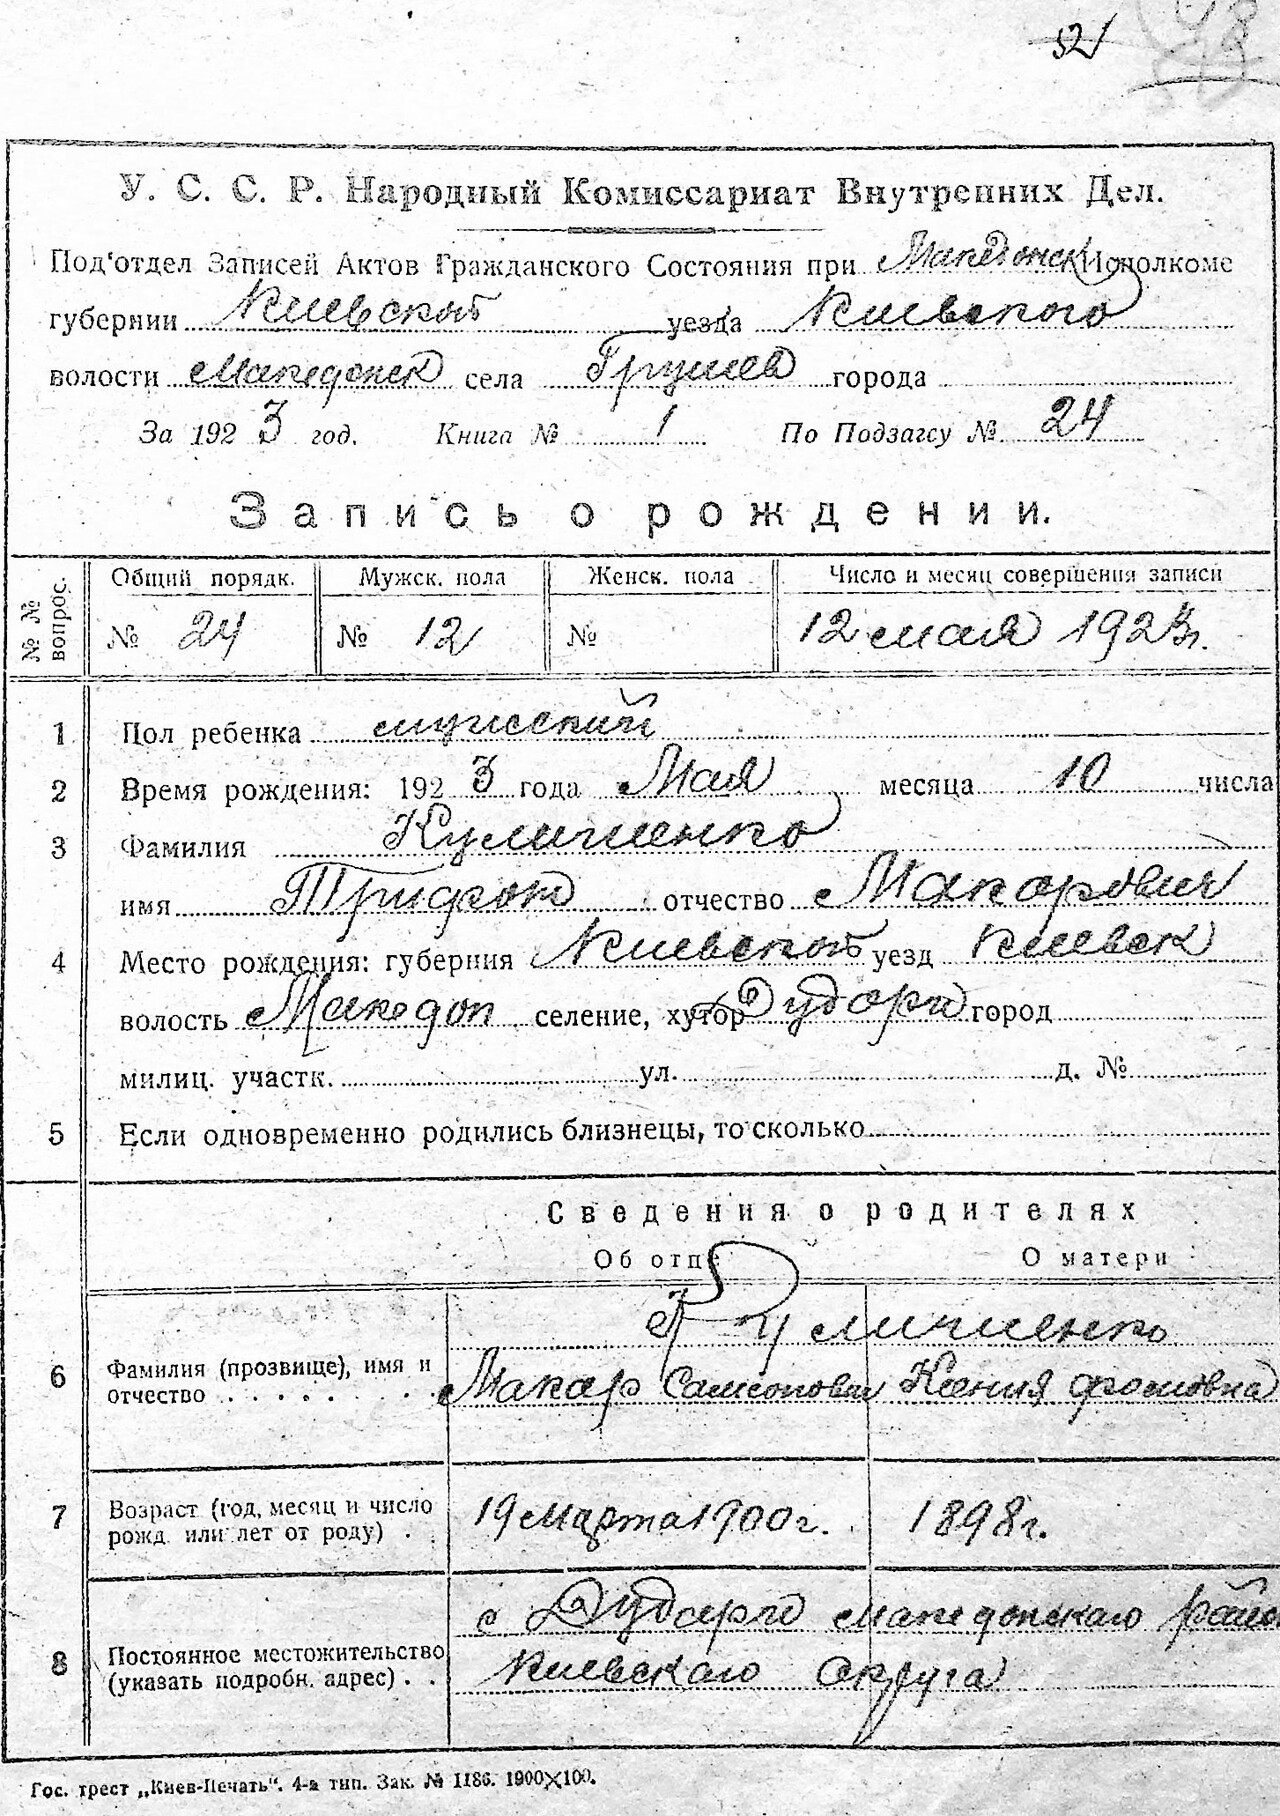 52
У. С. С. Р. Народный Комиссариат Внутренних Дел.
Под'отдел Записей Актов Гражданского Состояния при Македонск Исполкоме
губернии Киевской уезда Киевского
волости Македонск села Грушев города
За 1923 год. Книга № 1 По Подзагсу № 24
Запись о рождении.
№ № вопрос.
Общий порядк. Мужск. пола Женск. пола Число и месяц совершения записи
№ 24 № 12 № 12 мая 1923 г.
1 Пол ребенка мужский
2 Время рождения: 1923 года Мая месяца 10 числа
3 Фамилия Куличенко
имя Трифон отчество Макарович
4 Место рождения: губерния Киевской уезд Киевск
волость Македон селение, хутор Дудари город
милиц. участк. ул. д. №
5 Если одновременно родились близнецы, то сколько
Сведения о родителях
Об отце О матери
Куличиенко
6 Фамилия (прозвище), имя и отчество Макар Самсонович Ксения Фомовна
7 Возраст (год, месяц и число рожд. или лет от роду) 19 Марта 1900 г. 1898 г.
8 Постоянное местожительство (указать подробн. адрес) с Дудари Македонскаго район
Киевскаго Округа
Гос. трест „Киев-Печать". 4-а тип. Зак. № 1186. 1900X100.